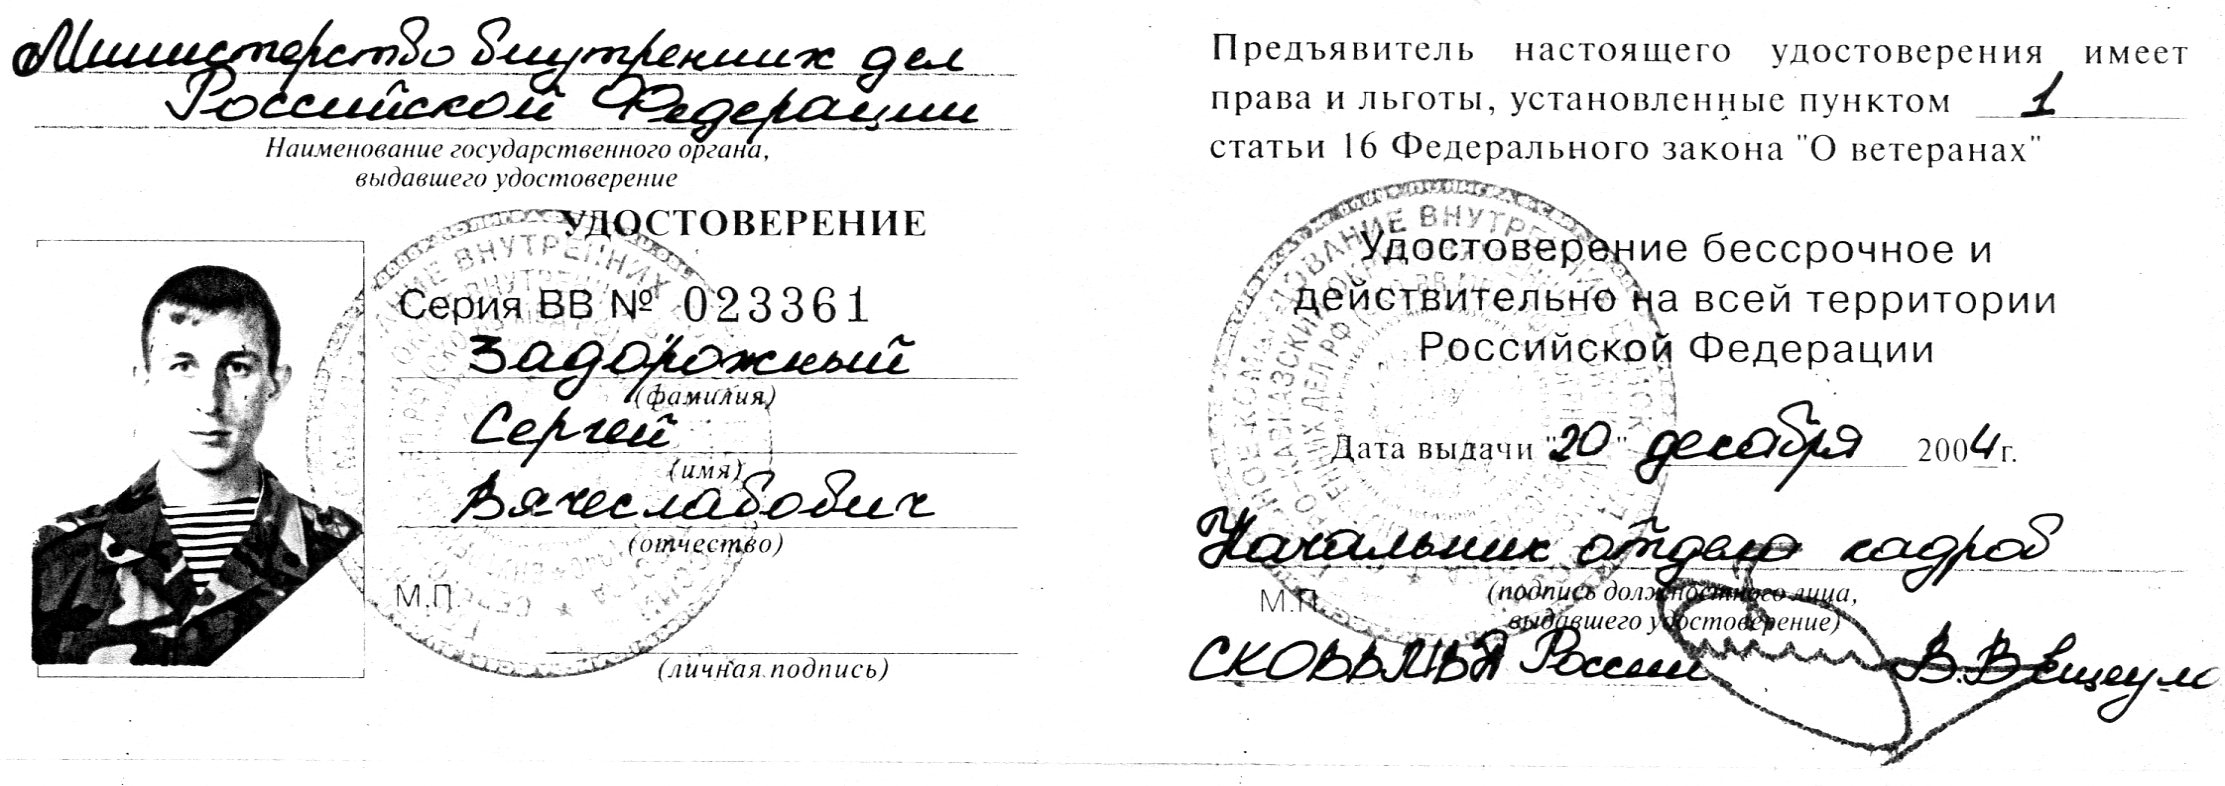 Министерство внутренних дел
Российской Федерации
Наименование государственного органа,
выдавшего удостоверение
УДОСТОВЕРЕНИЕ
Серия ВВ № 023361
Задорожный
(фамилия)
Сергей
(имя)
Вячеславович
(отчество)
М.П.
(личная подпись)
Предъявитель настоящего удостоверения имеет
права и льготы, установленные пунктом 1
статьи 16 Федерального закона "О ветеранах"
Удостоверение бессрочное и
действительно на всей территории
Российской Федерации
Дата выдачи "20" декабря 2004г.
Начальник отдела кадров
(подпись должностного лица,
М.П.
выдавшего удостоверение)
СКОВВМВД России В.В